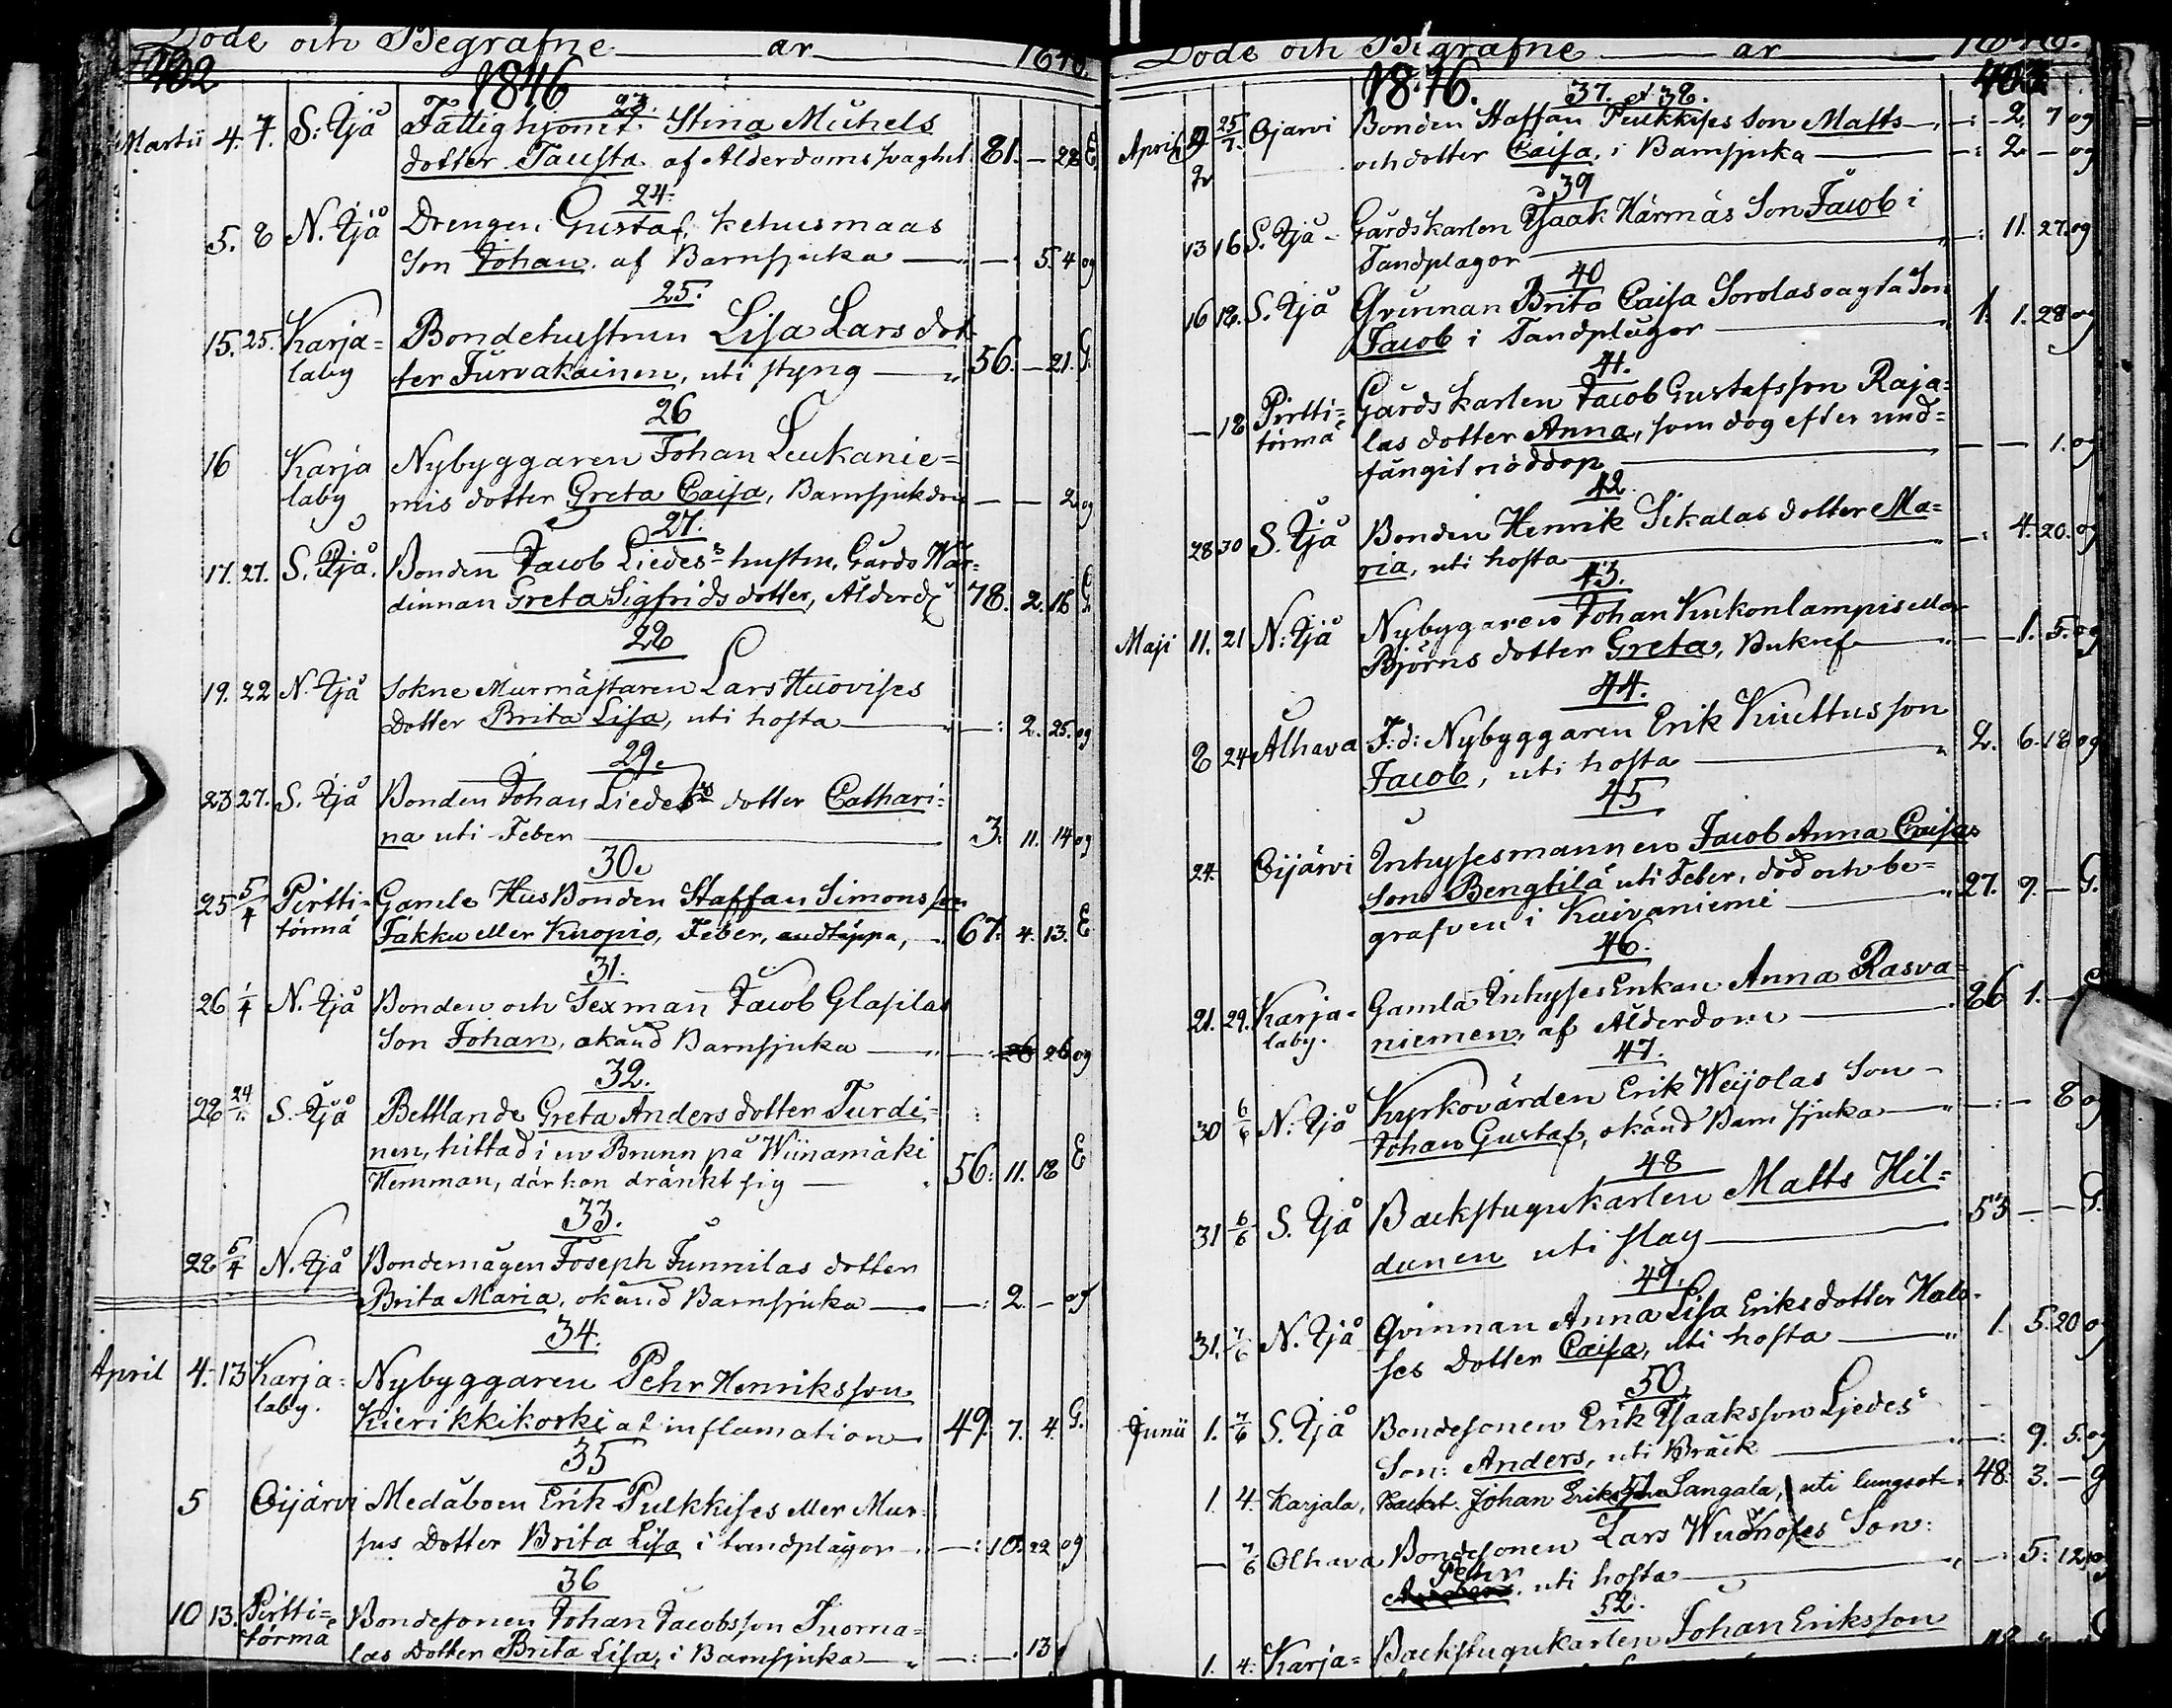 Döde och Begrafne år 1846.
402
1846
23.
Martii 4. 7. S: Ijå Fattighjonet Stina Michels
dotter Tausta af Alderdoms svaghet 81. — 28 E.
24.
5. 8 N. Ijå Drengen Gustaf Kehusmaas
Son Johan af Barnsjuka — 5. 4 og
25.
15. 25. Karja= Bondehustrun Lisa Lars dot
laby ter Turvakainen, uti styng — 56. — 21. G.
26
16 Karja Nybyggaren Johan Leukanie=
laby mis dotter Greta Caisa, Barnsjukdom — — 2 og
27.
17. 27. S. Ijå. Bonden Jacob Liedes hustru, Gårds Wär=
dinnan Greta Sigfrids dotter, Ålderd 78. 2. 16 G.
28
19. 22 N. Ijå Sokne Murmästaren Lars Huovises
dotter Brita Lisa, uti hosta — : 2. 25. og
29.
23 27. S. Ijå Bonden Johan Liedes dotter Cathari=
na uti Feber — 3: 11. 14 og
30.
25 5/4 Pirtti= Gamle Husbonden Staffan Simonsson
törmä Jakku eller Kuopio, Feber, andtäppa, — 67. 4. 13. E
31.
26 1/4 N. Ijå Bonden och Sexman Jacob Glasilas
Son Johan, okänd Barnsjuka — 26 26 og
32.
28 24/ S. Ijå Bettlande Greta Anders dotter Turdi=
nen, hittad i en Brunn på Wiinamäki
Hemman, där hon dränkt sig — 56: 11. 18 E
33.
28 5/4 N. Ijå Bondemågen Joseph Junnilas dotter
Brita Maria, okänd Barnsjuka — : 2. — og
34.
April 4. 13 Karja= Nybyggaren Pehr Henriksson
laby. Kierikkikoski af inflamation — 49. 7. 4. G.
35
5 Oijärvi Medåboen Erik Pulkkises eller Mur=
sus Dotter Brita Lisa i tandplågor — : 10. 22 og
36
10 13. Pirtti= Bondesonen Johan Jacobsson Tuorna=
törmä las Dotter Brita Lisa, i Barnsjuka — : — 13
Döde och Begrafne år 1846.
1846.
37. et 38.
April 25/7. Ojarvi Bonden Staffan Pulkkises Son Matts — : 2. 7 og
2 och dotter Caisa, i Barnsjuka — : 2 — og
39
13 16 S. Ijå Gårdskarlen Isaak Härmäs Son Jacob i
Tandplågor — : 11. 27. og
40
16 18. S. Ijå Qvinnan Brita Caisa Sorolas oägta Son
Jacob i Tandplågor — 1. 1. 28 og
41.
— 18 Pirtti= Gårdskarlen Jacob Gustafsson Raja=
törmä las dotter Anna, som dog efter und=
fångit nöddop — — — 1. og
42.
28 30 S. Ijå Bonden Henrik Sikalas dotter Ma=
ria, uti hosta — : 4. 20. og
43.
Maji 11. 21 N: Ijå Nybygaren Johan Kukonlampis eller
Björns dotter Greta, Bukref — — 1. 5. og
44.
8 24 Alhava F: d: Nybyggaren Erik Kiuttus son
Jacob, uti hosta — 2. 6. 18 og
45
24. Oijärvi Inhysesmannen Jacob Anna Caisas
Son Bengtilä uti Feber, död och be=
grafven i Kuivaniemi — 27. 9. — G.
46.
21. 29. Karja= Gamla Inhyses Enkan Anna Rasva=
laby. niemen, af Ålderdom — 86 1. —
47.
30 6/6 N. Ijå Kyrkovärden Erik Weijolas Son
Johan Gustaf, okänd Barnsjuka — : — 8 og
48
31 6/6 S. Ijå Backstugukarlen Matts Hil=
dunen uti slag — 53 — — G.
49.
31. 7/6 N. Ijå Qvinnan Anna Lisa Eriksdotter Halo=
ses Dotter Caisa, uti hosta — 1. 5. 20 og
50.
Junii 1. 7/6 S. Ijå Bondesonen Erik Isaaksson Ljedes
Son: Anders, uti Bråck — : 9. 5. og
1. 4. Karjala, Backst. Johan Eriksson Sangala, uti lungsot — 48. 3. — G
51
— 7/6 Olhava Bondesonen Lars Son:
Pehr uti hosta — : 5: 12 og
52.
1. 4. Karja= Backstugukarlen Johan Eriksson